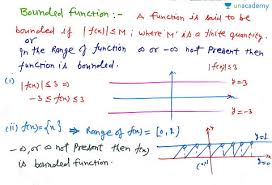 unacademy
Bounded function :- A function is said to be
bounded if |f(x)| ≤ M ; where 'M' is a finite quantity.
or
In the Range of function ∞ or -∞ not Present then
function is bounded.
(i) |f(x)| ≤ 3 ⇒
-3 ≤ f(x) ≤ 3
y=3
y=-3
(ii) f(x)={x} ⇒ Range of f(x) = [0,1)
-∞, ∞ not Present then f(x)
is bounded function.
y=1
y=0